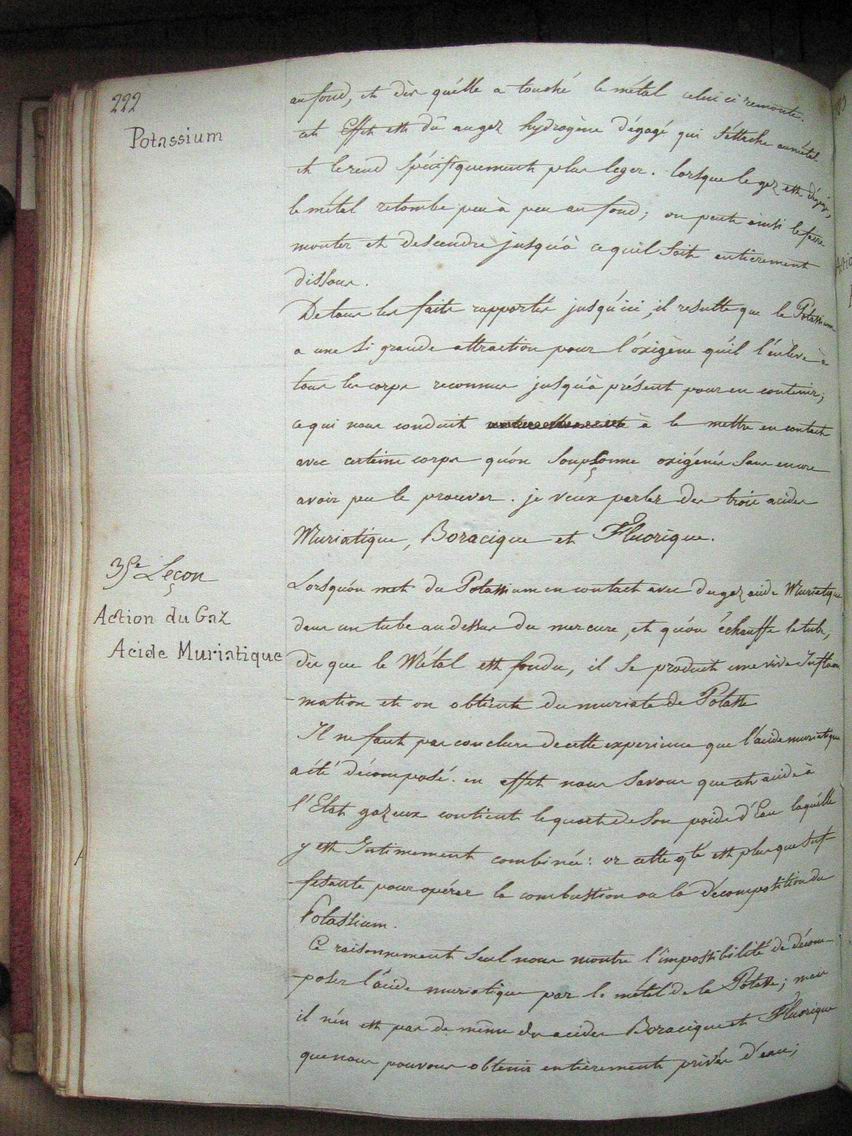 222
Potassium
au fond, et dès qu'elle a touché le métal celui ci remonte.
cet Effet est dû au gaz hydrogène dégagé qui s'attache au métal
et le rend spécifiquement plus leger. lorsque le gaz est dégagé,
le métal retombe peu à peu au fond; on peut ainsi le faire
monter et descendre jusqu'à ce quil soit entierement
dissous.
De tous les faits rapportés jusqu'ici, il resulte que le Potassium
a une si grande attraction pour l'oxigène qu'il l'enlève à
tous les corps reconnus jusqu'à présent pour en contenir;
ce qui nous conduit à le mettre en contact
avec certains corps qu'on soupçonne oxigénés sans encore
avoir pu le prouver. je veux parler des trois acides
Muriatique, Boracique et Fluorique.
35e Leçon
Action du Gaz
Acide Muriatique
Lorsqu'on met du Potassium en contact avec du gaz acide Muriatique
dans un tube au dessus du mercure, et qu'on échauffe le tube,
dès que le Métal est fondu, il se produit une vive Inflam
-mation et on obtient du muriate de Potasse
Il ne faut pas conclure de cette experience que l'acide muriatique
a été décomposé. en effet nous savons que cet acide à
l'Etat gazeux contient le quart de son poids d'Eau laquelle
y est Intimement combinée: or cette qté est plus que suf
-fisante pour opérer la combustion ou la décomposition du
Potassium.
Ce raisonnement seul nous montre l'impossibilité de décom-
-poser l'acide muriatique par le métal de la Potasse; mais
il n'en est pas de même des acides Boracique et Fluorique
que nous pouvons obtenir entièrement privés d'eau;